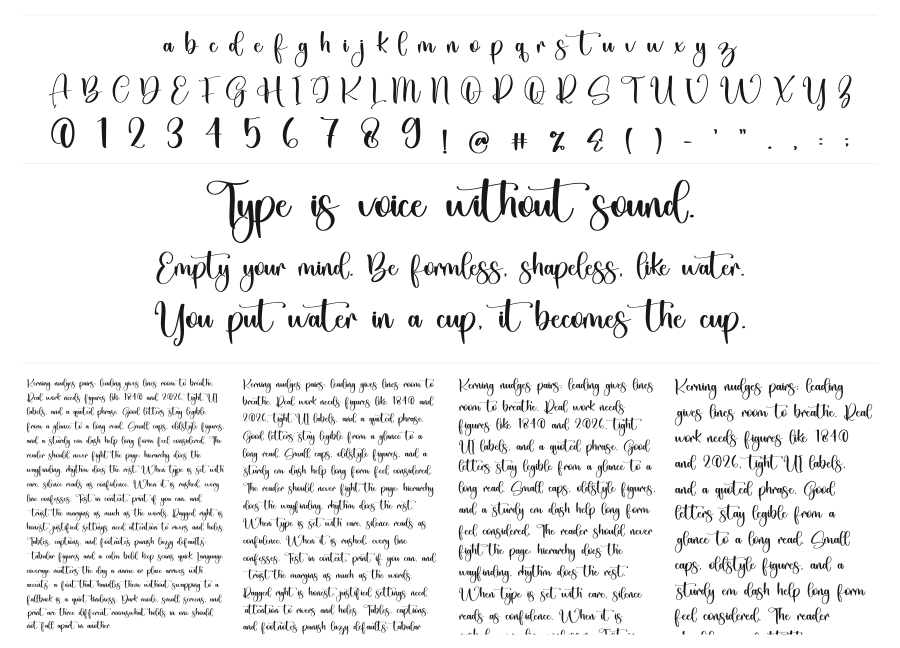 a b c d e f g h i j k l m n o p q r s t u v w x y z
A B C D E F G H I J K L M N O P Q R S T U V W X Y Z
0 1 2 3 4 5 6 7 8 9 ! @ # % & ( ) - ' " . , : ;
Type is voice without sound.
Empty your mind. Be formless, shapeless, like water.
You put water in a cup, it becomes the cup.
Kerning nudges pairs; leading gives lines room to breathe.
Real work needs figures like 1840 and 2026, tight UI
labels, and a quoted phrase. Good letters stay legible
from a glance to a long read. Small caps, oldstyle figures,
and a sturdy em dash help long form feel considered. The
reader should never fight the page: hierarchy does the
wayfinding, rhythm does the rest. When type is set with
care, silence reads as confidence. When it is rushed, every
line confesses. Test in context, print if you can, and
trust the margins as much as the words. Ragged right is
honest; justified settings need attention to rivers and holes.
Tables, captions, and footnotes punish lazy defaults;
tabular figures and a calm bold keep scans quick. Language
coverage matters the day a name or place arrives with
accents; a font that handles them without swapping to a
fallback is a quiet kindness. Dark mode, small screens, and
print are three different rooms; what holds in one should
not fall apart in another.
Kerning nudges pairs; leading gives lines room to
breathe. Real work needs figures like 1840 and
2026, tight UI labels, and a quoted phrase.
Good letters stay legible from a glance to a
long read. Small caps, oldstyle figures, and a
sturdy em dash help long form feel considered.
The reader should never fight the page: hierarchy
does the wayfinding, rhythm does the rest.
When type is set with care, silence reads as
confidence. When it is rushed, every line
confesses. Test in context, print if you can, and
trust the margins as much as the words.
Ragged right is honest; justified settings need
attention to rivers and holes. Tables, captions,
and footnotes punish lazy defaults; tabular
Kerning nudges pairs; leading gives lines
room to breathe. Real work needs
figures like 1840 and 2026, tight
UI labels, and a quoted phrase. Good
letters stay legible from a glance to a
long read. Small caps, oldstyle figures,
and a sturdy em dash help long form
feel considered. The reader should never
fight the page: hierarchy does the
wayfinding, rhythm does the rest.
When type is set with care, silence
reads as confidence. When it is
Kerning nudges pairs; leading
gives lines room to breathe. Real
work needs figures like 1840
and 2026, tight UI labels,
and a quoted phrase. Good
letters stay legible from a
glance to a long read. Small
caps, oldstyle figures, and a
sturdy em dash help long form
feel considered. The reader